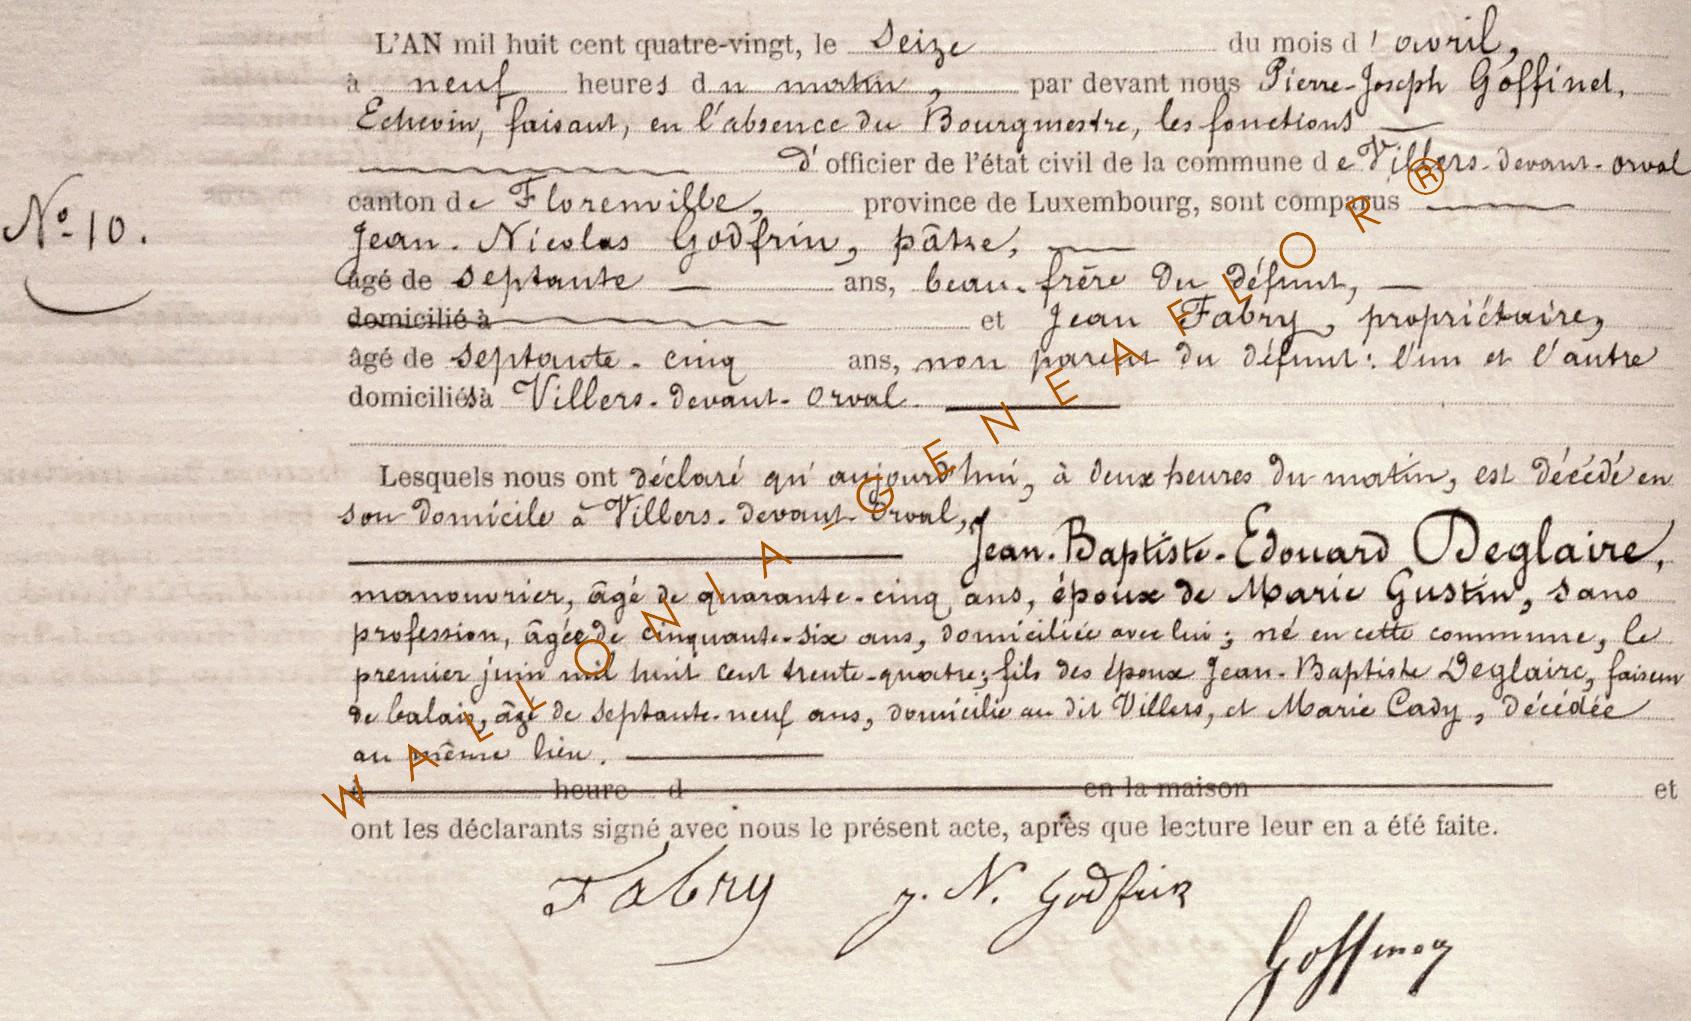 L'AN mil huit cent quatre-vingt, le seize du mois d'avril,
à neuf heures du matin, par devant nous Pierre-Joseph Goffinet,
Echevin, faisant, en l'absence du Bourgmestre, les fonctions
d'officier de l'état civil de la commune de Villers-devant-Orval
canton de Florenville, province de Luxembourg, sont comparus
N° 10.
Jean-Nicolas Godfrin, pâtre,
âgé de septante ans, beau-frère du défunt,
domicilié à et Jean Fabry, propriétaire,
âgé de septante-cinq ans, non parent du défunt: l'un et l'autre
domiciliés à Villers-devant-Orval.
Lesquels nous ont déclaré qu'aujourd'hui, à deux heures du matin, est décédé en
son domicile à Villers-devant-Orval,
Jean-Baptiste-Edouard Deglaire,
manouvrier, âgé de quarante-cinq ans, époux de Marie Gustin, sans
profession, âgée de cinquante-six ans, domiciliée avec lui; né en cette commune, le
premier juin mil huit cent trente-quatre; fils des époux Jean-Baptiste Deglaire, faiseur
de balais, âgé de septante-neuf ans, domicilié au dit Villers, et Marie Cady, décédée
au même lieu.
à heure d en la maison et
ont les déclarants signé avec nous le présent acte, après que lecture leur en a été faite.
Fabry J. N. Godfrin
WALLONIA-GENEAFLOR®